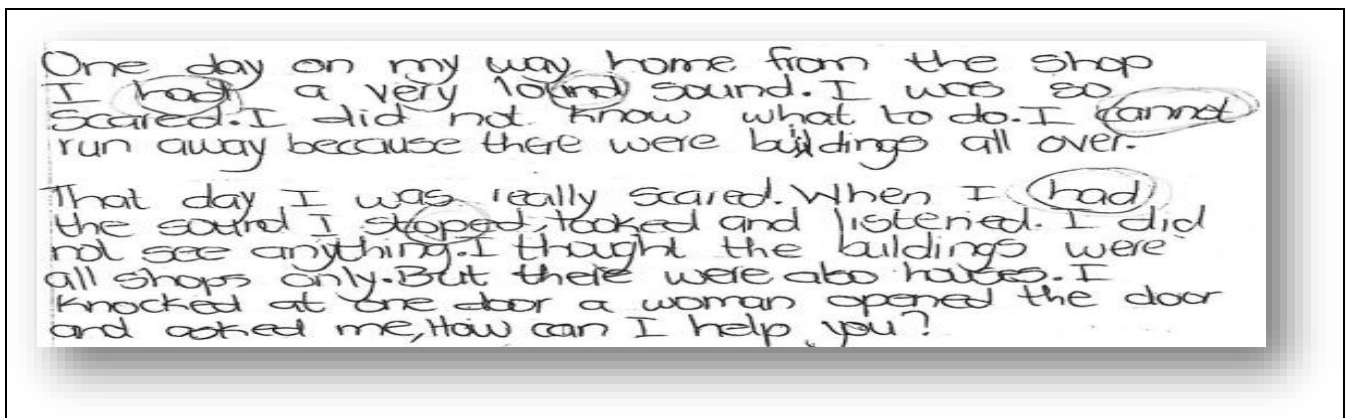 One day on my way home from the shop
I had a very lound sound. I was so
scared. I did not know what to do. I cannot
run away because there were buildings all over.
That day I was really scared. When I had
the sound I stoped, looked and listened. I did
not see anything. I thought the buildings were
all shops only. But there were also houses. I
knocked at one door a woman opened the door
and asked me, How can I help you?